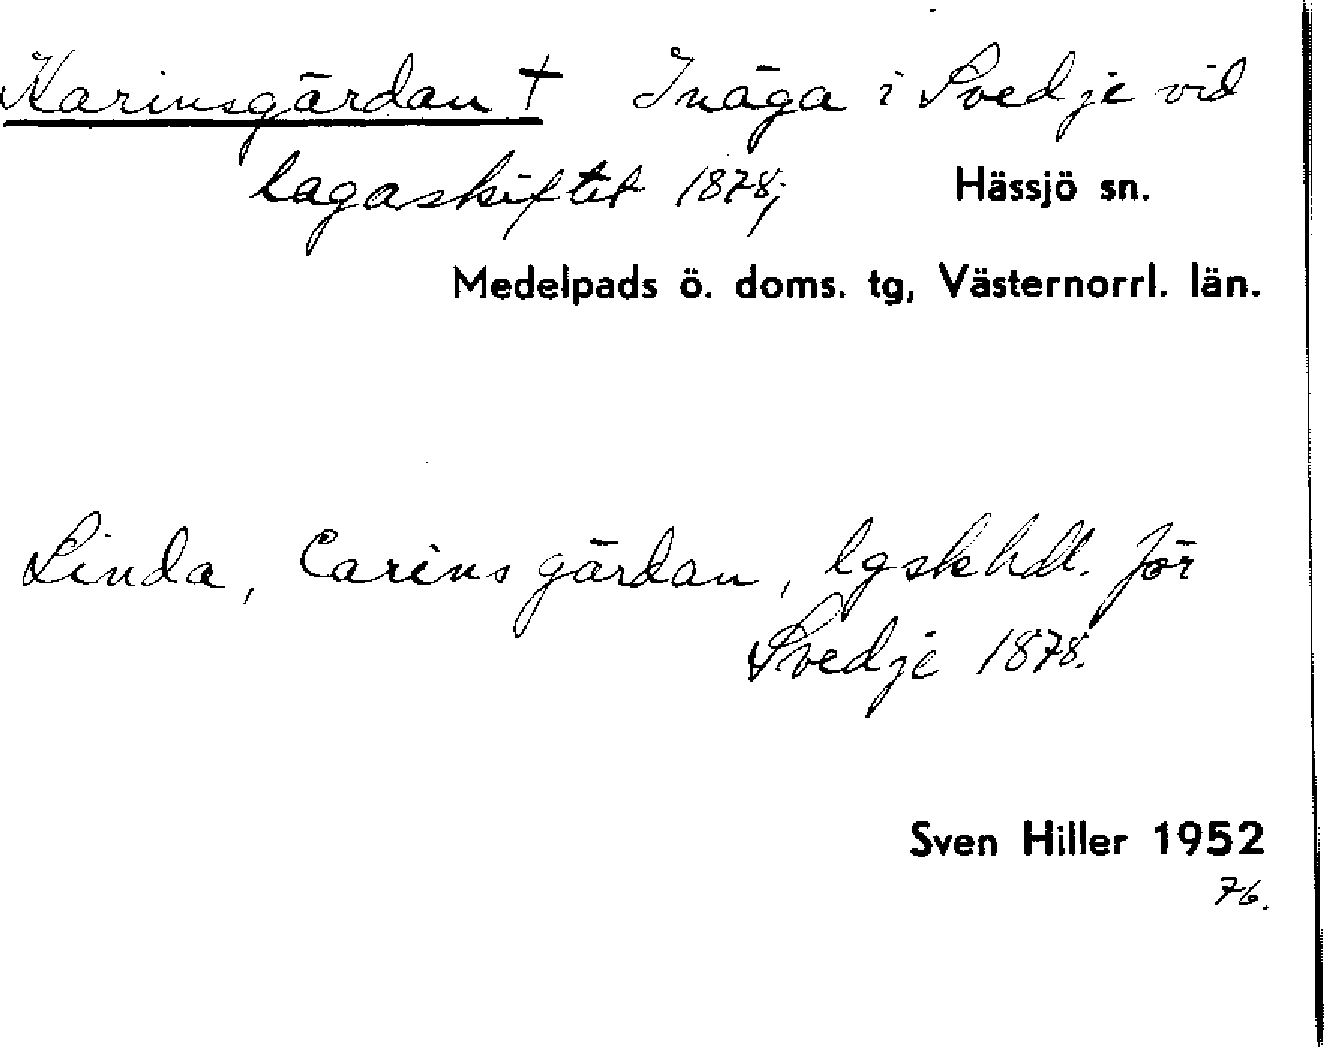 Karinsgärdan † Inäga i Svedje vid
lagaskiftet 1878; Hässjö sn.
Medelpads ö. doms. tg, Västernorrl. län.
Linda, Carins gärdan, lgskhdl. för
Svedje 1878.
Sven Hiller 1952
76.